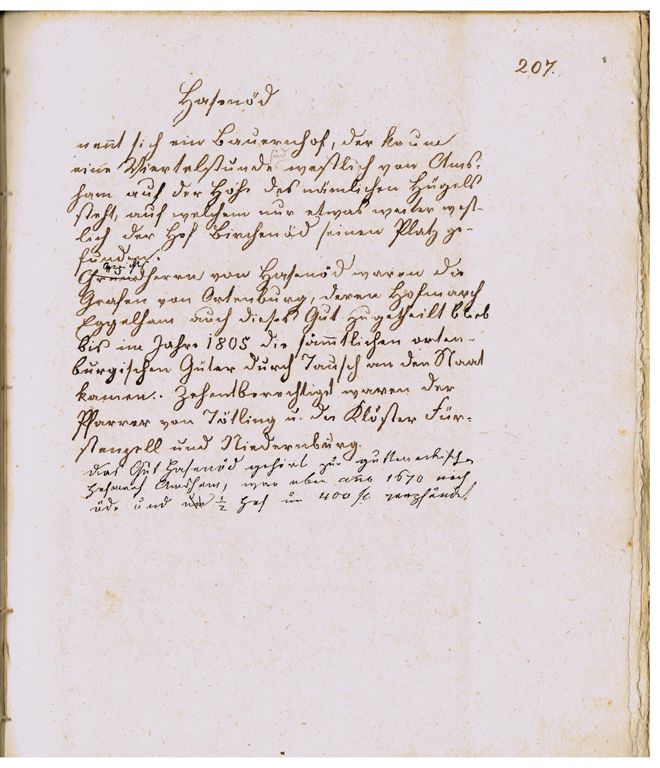 207.
Hasenöd
nent sich ein Bauernhof, der kaum
eine Viertelstunde westlich von Ams-
ham auf der Höhe des nämlichen Hügels
steht, auf welchem nur etwas weiter west-
lich der Hof Birchenöd seinen Platz ge-
funden.
Grundherrn von Hasenöd waren die
Grafen von Ortenburg, deren Hofmarch
Eggelham auch dieses Gut zugetheilt blieb
bis im Jahre 1805 die sämtlichen orten-
burgischen Güter durch Tausch an den Staat
kamen. Zehentberechtigt waren der
Pfarrer von Tötling u. die Klöster Für-
stenzell und Niedernburg.
Das Gut Hasenöd gehört zur
Hofmarch Amsham, war aber ano 1670 noch
öde und ½ Hof um 400 fl. verpfändet.